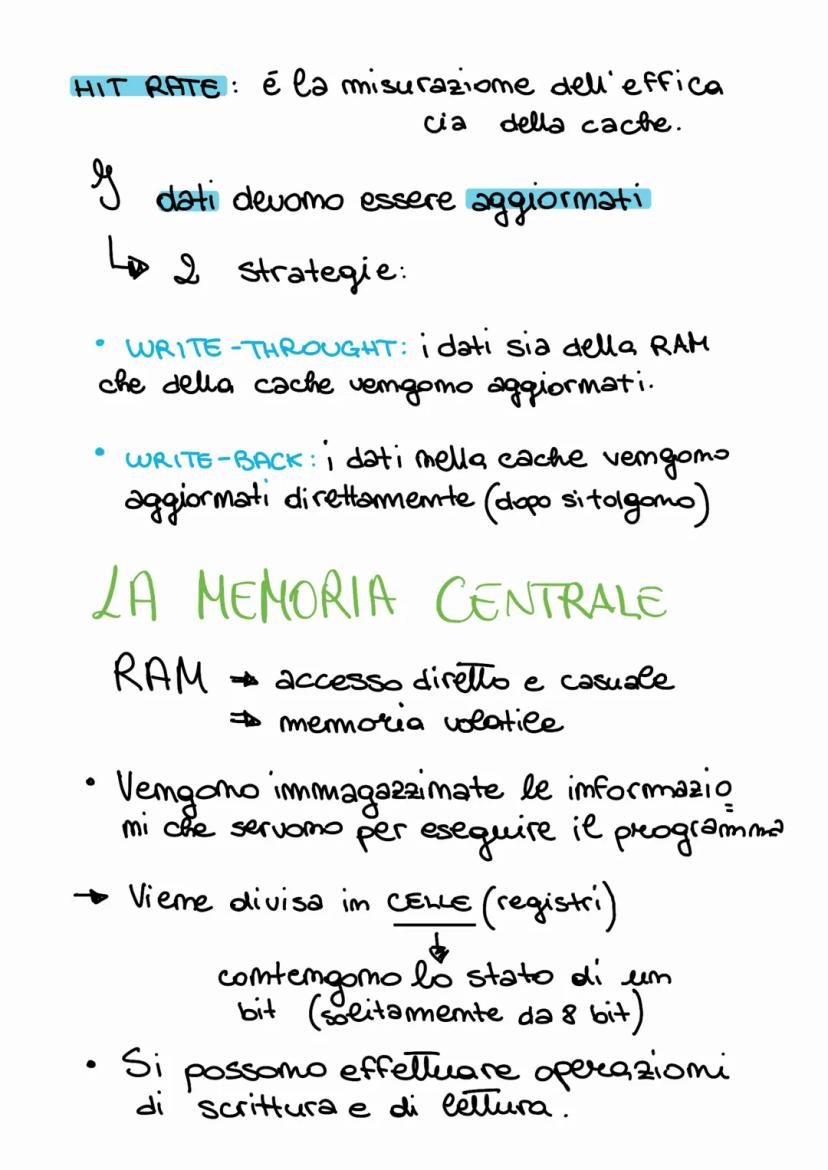 HIT RATE: é la misurazione dell'effica
cia della cache.
I dati devono essere aggiornati
2 strategie:
• WRITE-THROUGHT: i dati sia della RAM
che della cache vengono aggiornati.
• WRITE-BACK: i dati nella cache vengono
aggiornati direttamente (dopo si tolgono)
LA MEMORIA CENTRALE
RAM → accesso diretto e casuale
⇒ memoria volatile
• Vengono immagazzinate le informazio
ni che servono per eseguire il programma
→ Viene divisa in CELLE (registri)
contengono lo stato di un
bit (solitamente da 8 bit)
• Si possono effettuare operazioni
di scrittura e di lettura.